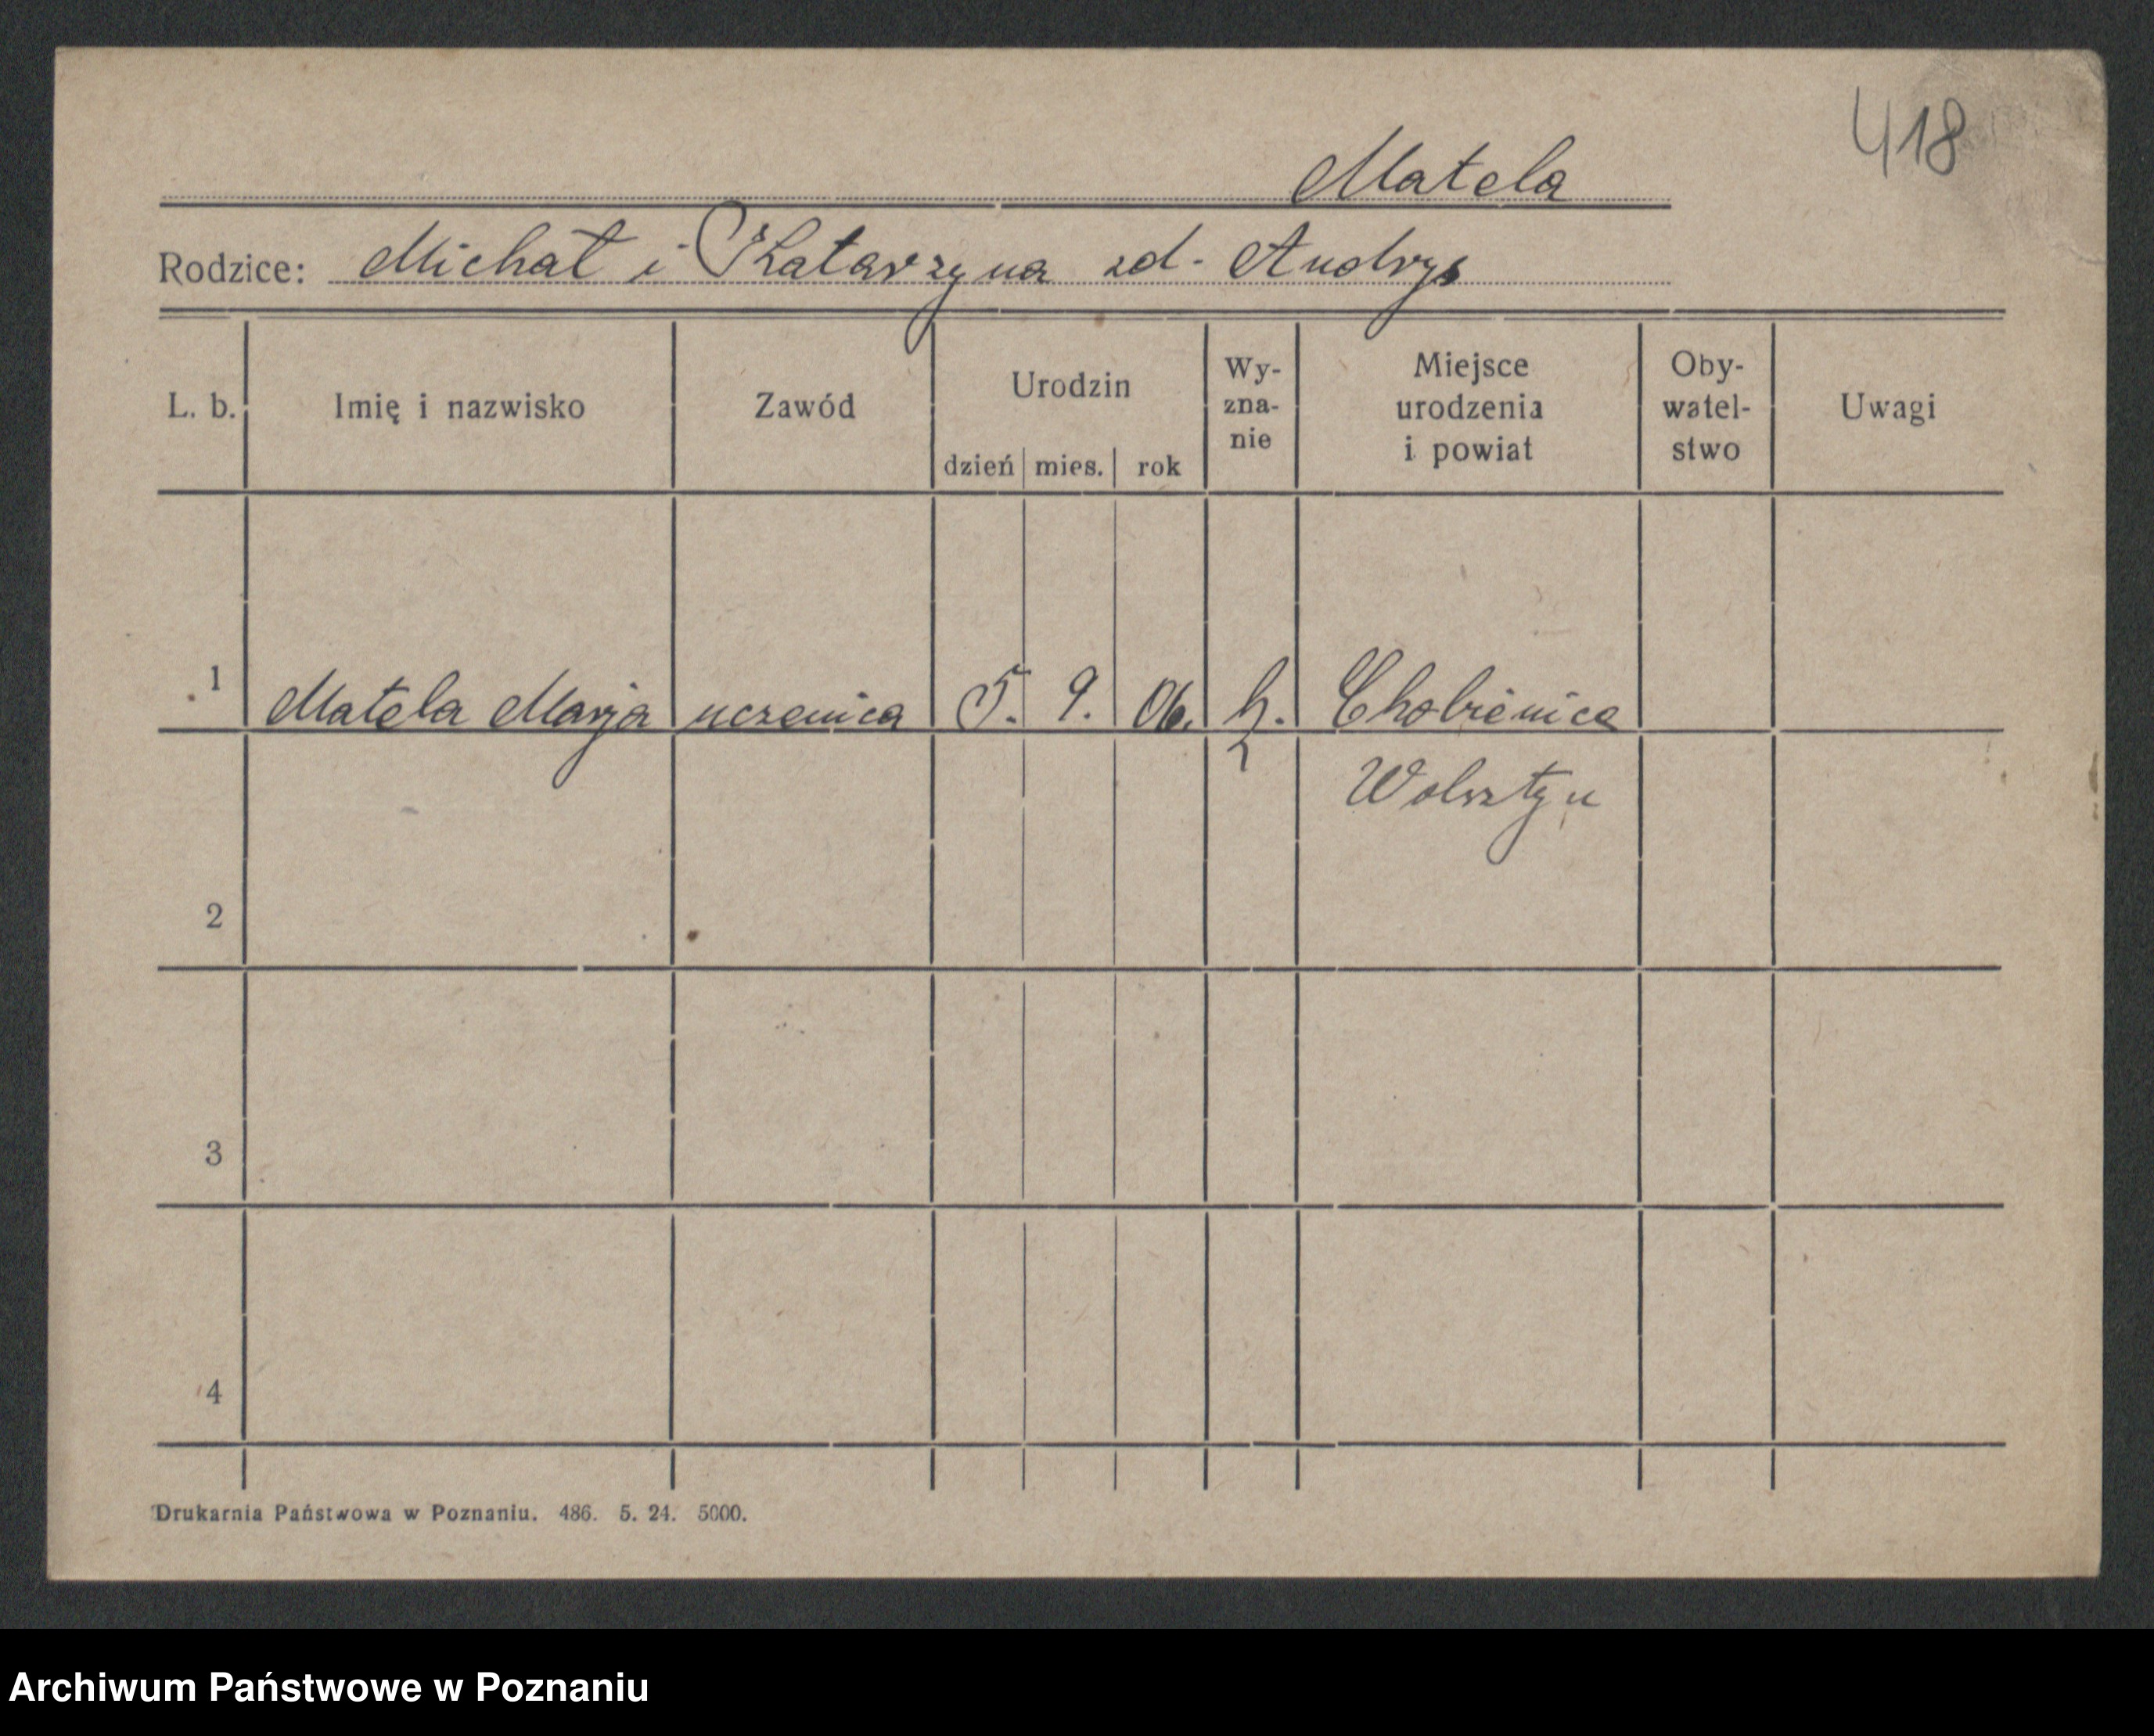 418
Matela
Rodzice: Michał i Katarzyna zd. Andrys
L. b. Imię i nazwisko Zawód Urodzin dzień mies. rok Wy-zna-nie Miejsce urodzenia i powiat Oby-watel-stwo Uwagi
1 Matela Marja uczenica 5. 9. 06. k. Chobienice
Wolsztyn
2
3
4
Drukarnia Państwowa w Poznaniu. 486. 5. 24. 5000.
Archiwum Państwowe w Poznaniu